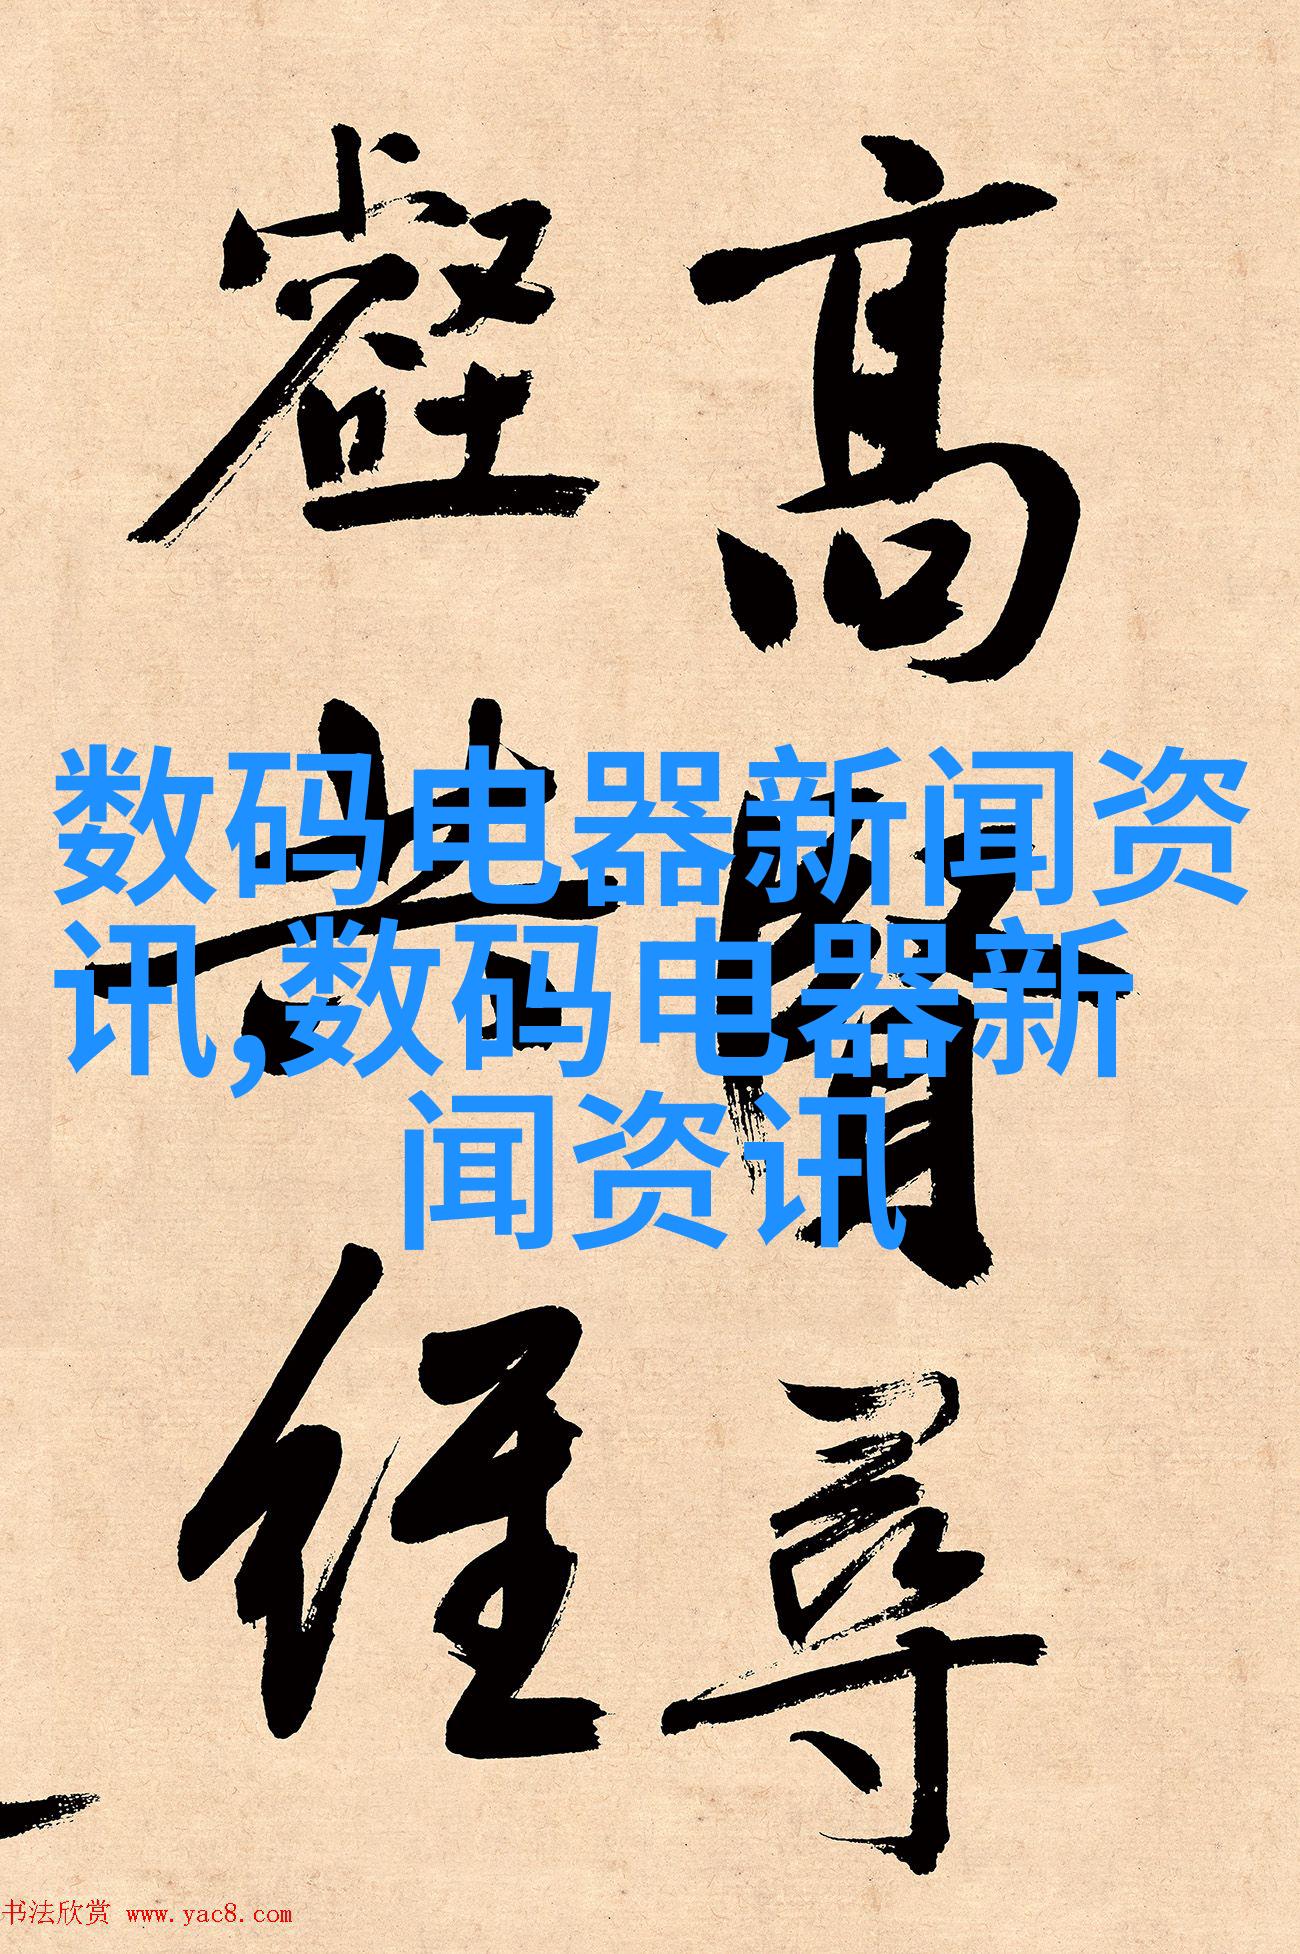 高賢尋
壑共經
数码电器新闻资
讯,数码电器新
闻资讯
书法欣赏 www.yac8.com